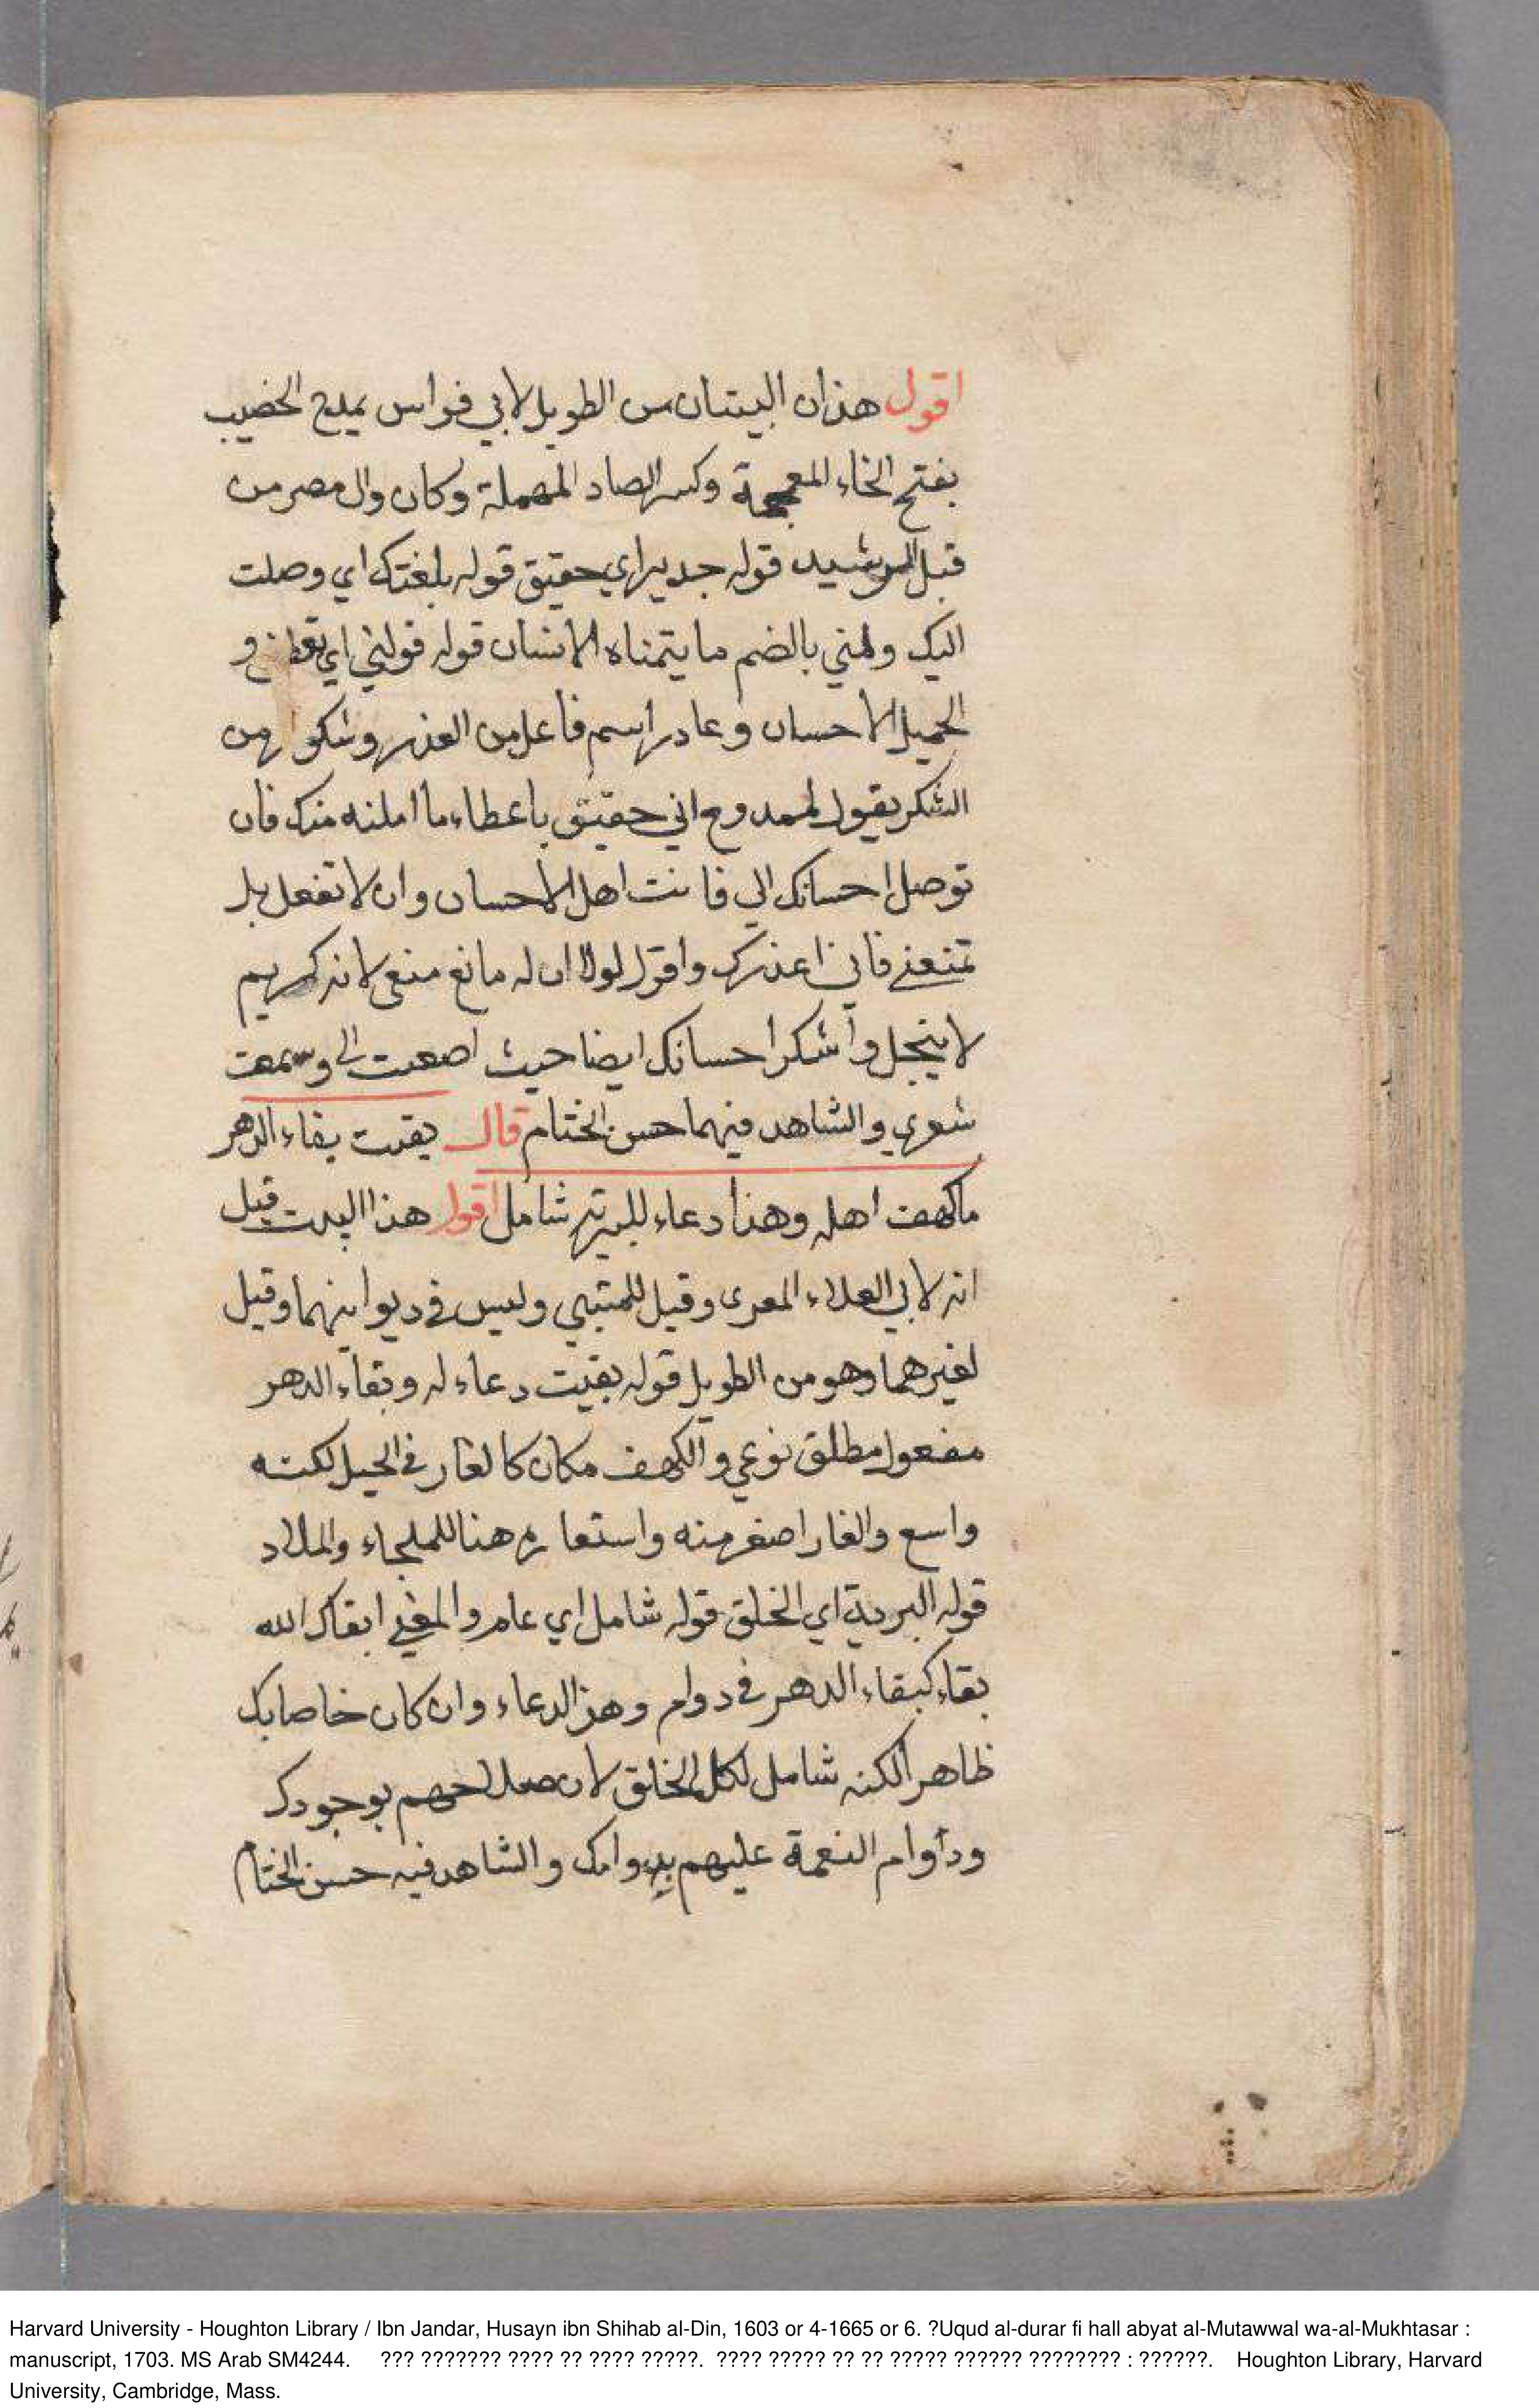 اقول هذان البيتان من الطويل لابي فراس يمدح الخضيب
بفتح الخاء المعجمة وكسر الصاد المهملة وكان وال مصر من
قبل الرشيد قوله جدير اي حقيق قوله بلغتك اي وصلت
اليك والمني بالضم ما يتمناه الانسان قوله فولني اي و
الجميل الاحسان وعادر اسم فاعل من العذر وشكور من
الشكر يقول لممدوح اني حقيق باعطاء ما املته منك فان
توصل احسانك الي فانت اهل الاحسان وان لا تفعل بل
تمنعني فاني اعذرك واقول لولا ان له مانع منعى لانه كريم
لا يبخل وأشكر احسانك ايضا حيث اصعت الى وسمعت
شعري والشاهد فيهما حسن الختام قال بقيت بقاء الدهر
ما كهف اهله وهذا دعاء للبرية شامل اقول هذا البيت قيل
انه لابي العلاء المعرى وقيل للمتنبي وليس في ديوانهما وقيل
لغيرهما وهو من الطويل قوله بقيت دعاء له وبقاء الدهر
مفعول مطلق نوعي والكهف مكان كالغار في الجبل لكنه
واسع والغار اصغر منه واستعاره هنا للملجاء والملاد
قوله البرية اي الخلق قوله شامل اي عام والمعني ابقاك الله
بقاء كبقاء الدهر في دوام وهذا الدعاء وان كان خاصا بك
ظاهرا لكنه شامل لكل الخلق لان صلاحهم بوجودك
ودأوام النعمة عليهم بدوامك والشاهد فيه حسن الختام
Harvard University - Houghton Library / Ibn Jandar, Husayn ibn Shihab al-Din, 1603 or 4-1665 or 6. ?Uqud al-durar fi hall abyat al-Mutawwal wa-al-Mukhtasar :
manuscript, 1703. MS Arab SM4244. ??? ??????? ???? ?? ???? ?????. ???? ????? ?? ?? ????? ?????? ???????? : ??????. Houghton Library, Harvard
University, Cambridge, Mass.